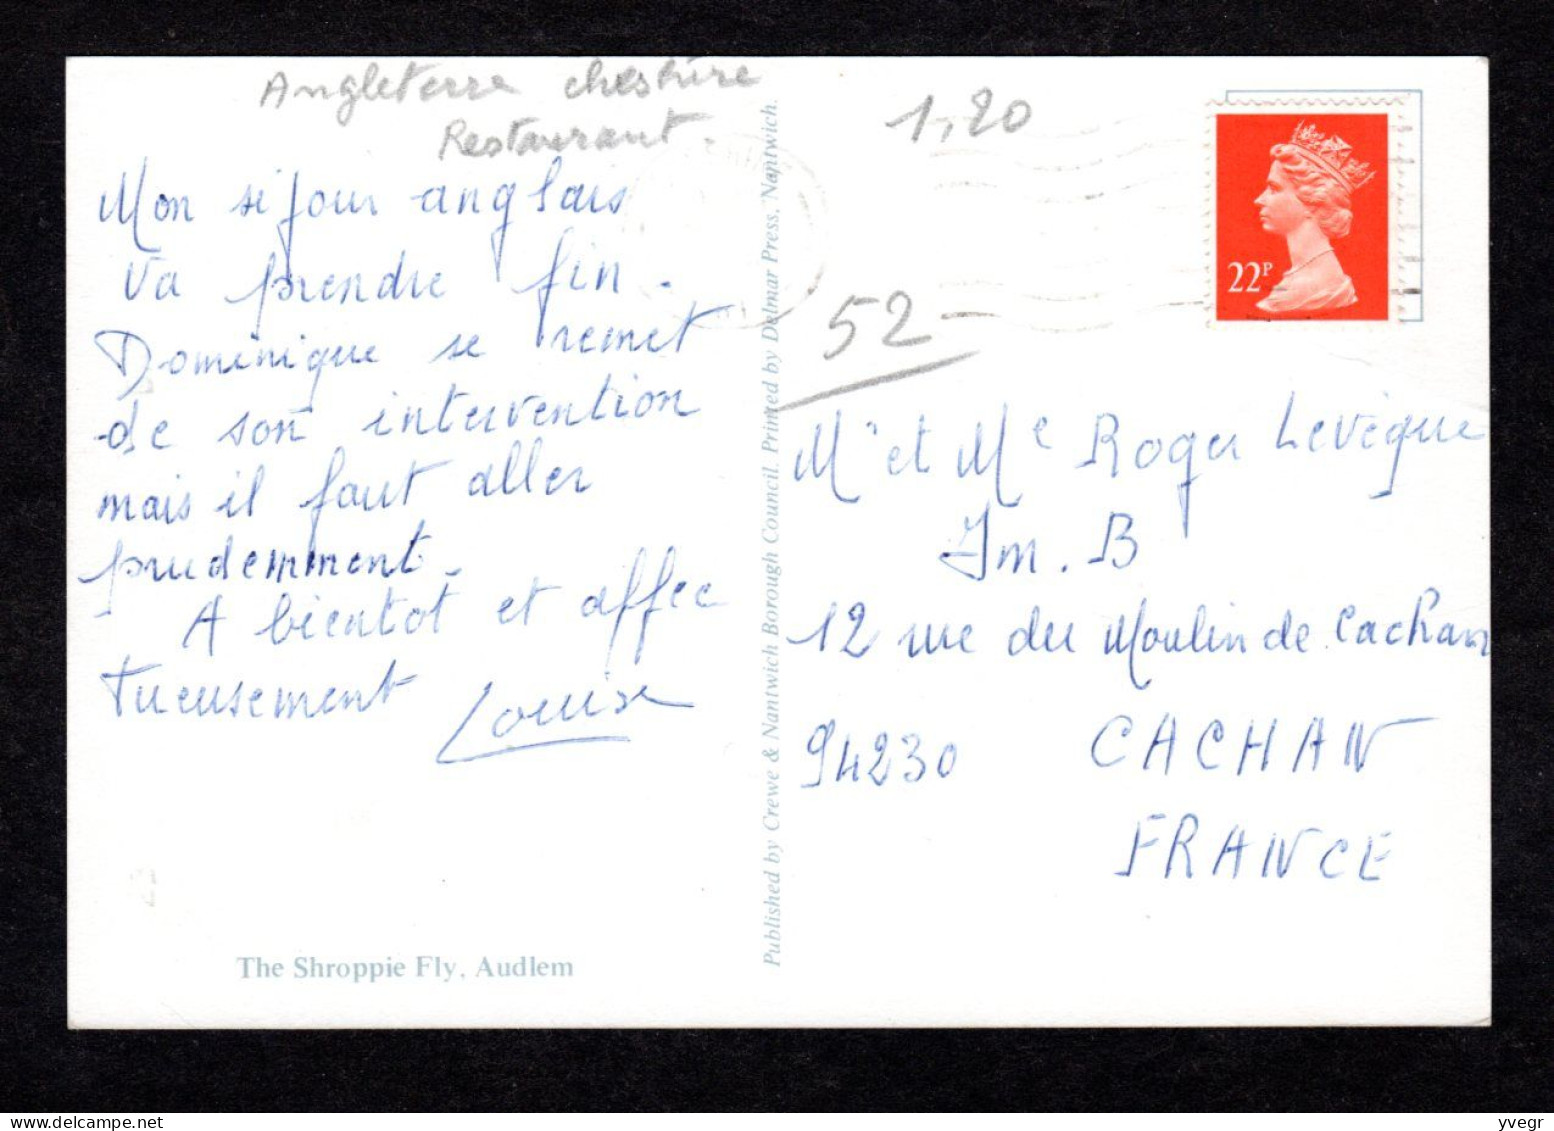 Angleterre cheshire
Restaurant.
Mon séjour anglais
va prendre fin.
Dominique se remet
de son intervention
mais il faut aller
prudemment.
A bientot et affec
tueusement Louise
The Shroppie Fly, Audlem
Published by Crewe & Nantwich Borough Council. Printed by Delmar Press, Nantwich.
1,20
22P
52-
Mr et Me Roger Levêque
Im. B
12 rue du Moulin de Cachan
94230 CACHAN
FRANCE
yvegr